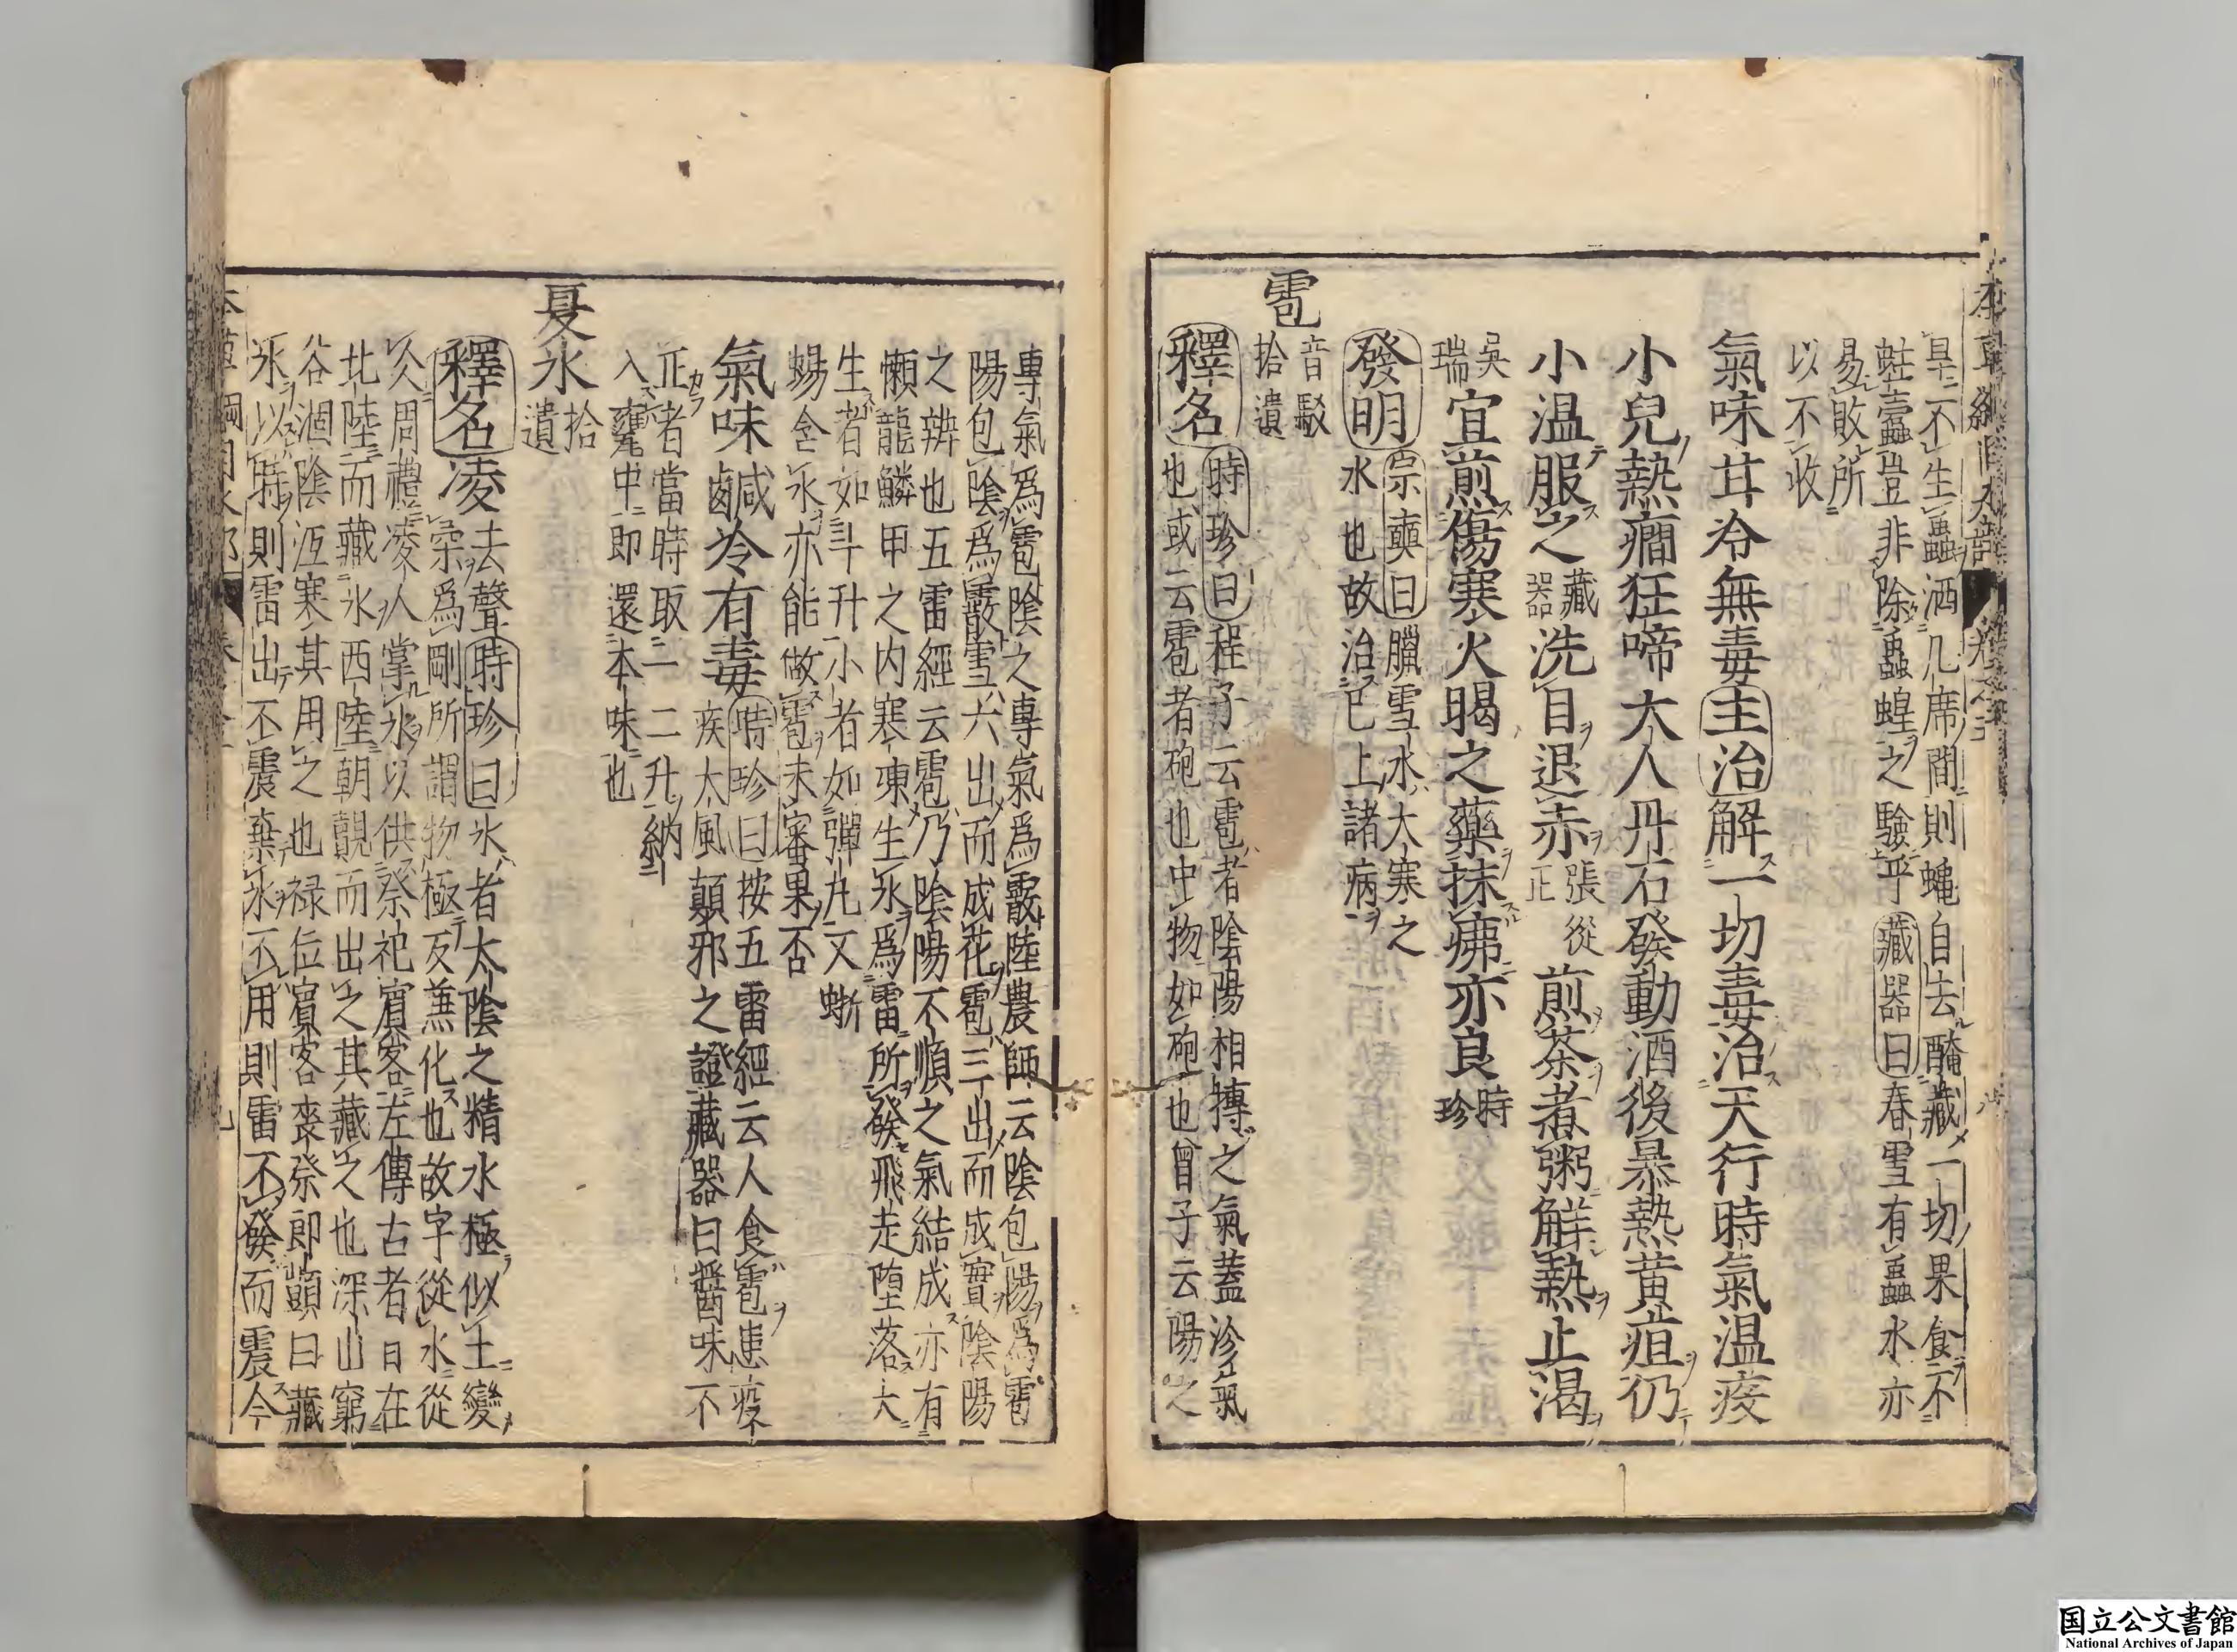 旱不生蟲洒几席間則蠅自去醃藏一切果食不
蛀蠹豈非除蟲蝗之驗乎藏器曰春雪有蟲水亦
易敗所
以不收
氣味甘冷無毒主治解一切毒治天行時氣温疫
小兒熱癇狂啼大人丹石發動酒後暴熱黄疸仍
小温服之藏器洗目退赤張從正煎茶煮粥解熱止渇
吳瑞宜煎傷寒火暍之藥抹痱亦良時珍
發明宗奭曰臘雪水大寒之
水也故治已上諸病
雹音駁
拾遺
釋名時珍曰程子云雹者陰陽相摶之氣蓋沴氣
也或云雹者砲也中物如砲也曾子云陽之
專氣爲雹陰之專氣爲霰陸農師云陰包陽爲雹
陽包陰爲霰雪六出而成花雹三出而成實陰陽
之辨也五雷經云雹乃陰陽不順之氣結成亦有
懶龍鱗甲之内寒凍生氷爲雷所發飛走墮落大
生者如斗升小者如彈丸又蜥
蜴含氷亦能做雹未審果否
氣味鹹冷有毒時珍曰按五雷經云人食雹患疫
疾大風顛邪之證藏器曰醬味不
正者當時取一二升納
入甕中即還本味也
夏氷拾遺
釋名凌去聲時珍曰氷者太陰之精水極似土變
柔爲剛所謂物極反兼化也故字從水從
仌周禮凌人掌氷以供祭祀賓客左傳古者日在
北陸而藏氷西陸朝覿而出之其藏之也深山窮
谷涸陰沍寒其用之也禄位賓客喪祭郎顗曰藏
氷以時則雷出不震棄氷不用則雷不發而震今
国立公文書館
National Archives of Japan